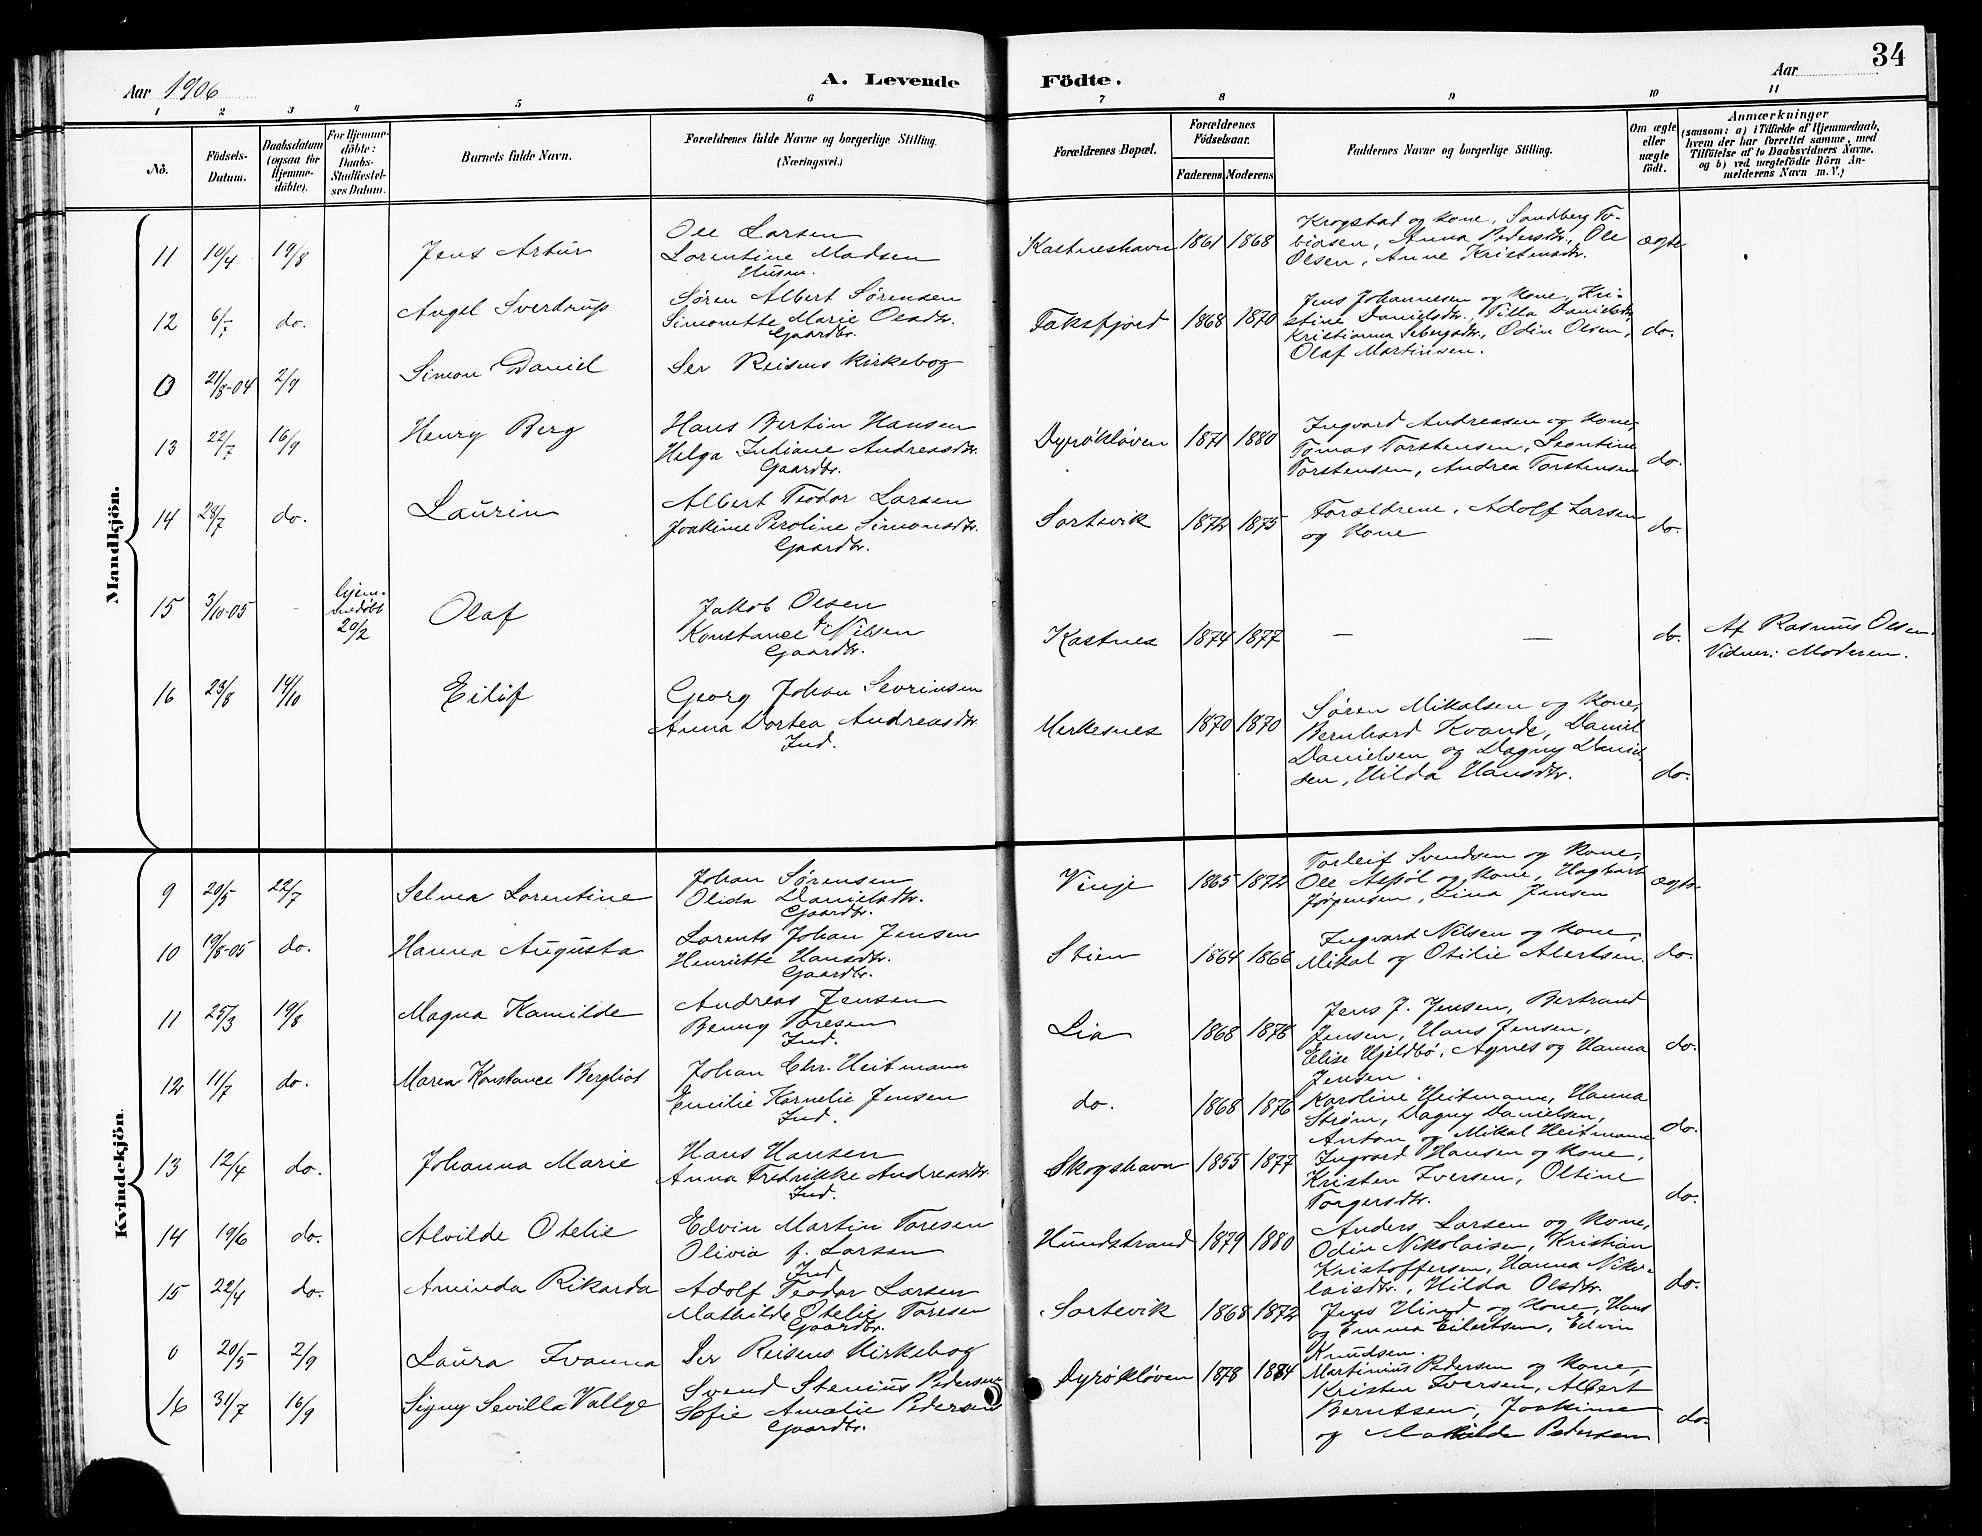 34
Aar 1906 A. Levende Födte. Aar
1 2 3 4 5 6 7 8 9 10 11
No. Födsels-Datum. Daabsdatum (ogsaa for Hjemme-döbte). For Hjemme-döbte: Daabs-Stadfæstel-ses Datum. Barnets fulde Navn. Forældrenes fulde Navne og borgerlige Stilling. (Næringsvei.) Forældrenes Bopæl. Forældrenes Födselsaar. Faderens. Moderens. Faddernes Navne og borgerlige Stilling. Om ægte eller uægte födt. Anmærkninger (saasom: a) i Tilfælde af Hjemmedaab, hvem der har forrettet samme, med Tilföielse af to Daabsvidners Navne, og b) ved uægtefödte Börn An-melderens Navn m. V.)
Mandkjön.
11 10/4 19/8 Jens Artur Ole Larsen
Lorentine Madsen
Husm. Kastneshavn 1861 1868 Krogstad og Kone, Sandberg To-
biasen, Anna Pedersdtr., Ole
Olsen, Anne Kristensdtr. ægte
12 do. Angel Sverdrup Søren Albert Sørensen
Simonette Marie Olsdtr.
Gaardbr. Faksfjord 1868 1870 Jens Johannesen og Kone, Kri-
stine Danielsdtr., Tilla Danielsdtr.
Kristianna Sebergsdtr., Odin Olsen,
Olaf Martinsen. do.
0 21/8-04 2/9 Simon Daniel Ser Reisens Kirkebog
13 22/7 16/9 Henry Berg Hans Bertin Hansen
Helga Indiane Andreasdtr.
Gaardbr. Dyrøkløven 1871 1880 Ingvard Andreassen og Kone,
Tomas Torstensen, Leontine
Torstensen, Andrea Torstensen do.
14 28/7 do. Laurin Albert Teodor Larsen
Joakime Peroline Simonsdtr.
Gaardbr. Sortevik 1872 1875 Forældrene, Adolf Larsen
og Kone do.
15 3/10-05 - hjem-
medøbt
20/2 Olaf Jakob Olsen
Konstance f. Nilsen
Gaardbr. Kastnes 1874 1877 — — do. Af Rasmus Olsen.
Vidner: Moderen.
16 23/8 14/10 Eilif Georg Johan Sevrinsen
Anna Dortea Andreasdtr.
Ind. Merkesnes 1870 1870 Søren Mikalsen og Kone,
Bernhard Kvande, Daniel
Danielsen og Dagny Daniel-
sen, Hilda Hansdtr. do.
Kvindekjön.
9 20/5 22/7 Selma Lorentine Johan Sørensen
Olida Danielsdtr.
Gaardbr. Vinje 1865 1872 Torleif Svendsen og Kone,
Ole Aspøl og Kone, Hagbart
Jørgensen, Lina Jensen ægte
10 19/8-05 do. Hanna Augusta Lorents Johan Jensen
Henriette Hansdtr.
Gaardbr. Stien 1864 1866 Ingvard Nilsen og Kone,
Mikal og Otilie Albertsen. do.
11 25/3 19/8 Magna Kamilde Andreas Jensen
Benny Toresen
Ind. Lia 1868 1878 Jens J. Jensen, Bertrand
Jensen, Hans Jensen,
Elise Hjeldbø, Agnes og Hanna
Jensen. do.
12 11/7 do. Maren Konstance Bergliot Johan Chr. Heitmann
Emilie Kornelie Jensen
Ind. do. 1868 1876 Karoline Heitmann, Hanna
Strøm, Dagny Danielsen,
Anton og Mikal Heitmann do.
13 12/4 do. Johanna Marie Hans Hansen
Anna Fredrikke Andreasdtr.
Ind. Skogshavn 1855 1877 Ingvard Hansen og Kone,
Kristen Iversen, Oltine
Torgersdtr. do.
14 19/6 do. Alvilde Otelie Edvin Martin Toresen
Olivia f. Larsen
Ind Hundstrand 1879 1880 Anders Larsen og Kone,
Odin Nikolaisen, Kristian
Kristoffersen, Hanna Niko-
laisdtr., Hilda Olsdtr. do.
15 22/4 do. Aminda Rikarda Adolf Teodor Larsen
Mathilde Otelie Toresen
Gaardbr. Sortevik 1868 1872 Jens Hind og Kone, Hans
og Emma Eilertsen, Edvin
Knudsen.
0 20/5 2/9 Laura Ivanna Ser Reisens Kirkebog
16 31/7 16/9 Signy Sevilla Vallye Svend Stenius Pedersen
Sofie Amalie Pedersen
Gaardbr. Dyrøkløven 1878 1884 Martinius Pedersen og Kone,
Kristen Iversen, Albert
Berntsen, Joakime
og Matilde Pedersen do.